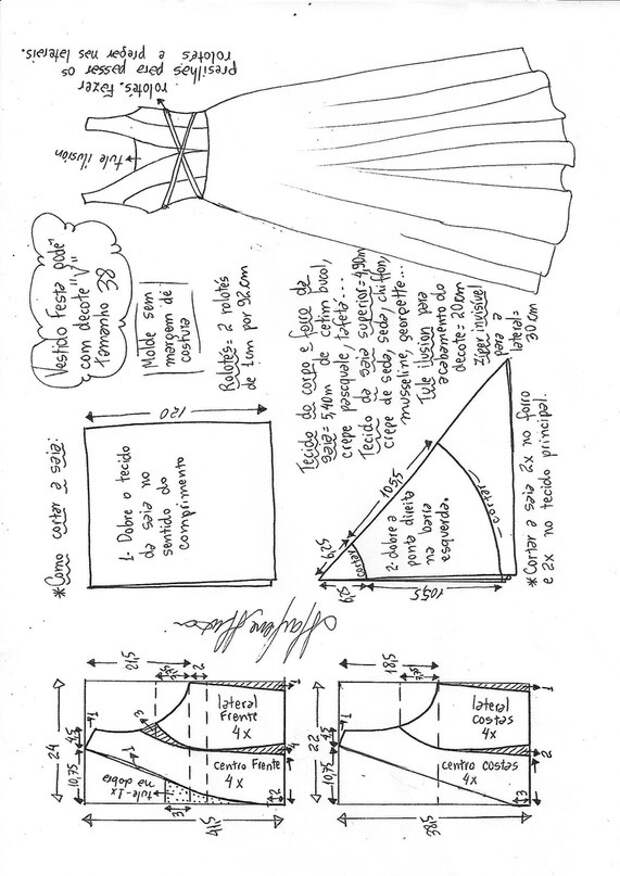 presilhas para passar os
rolotês e pregar nas laterais.
rolotês. Fazer
tule ilusión
Vestido Festa pode
com decote "V"
Tamanho 38
Molde sem
margem de
costura
Rolotês= 2 rolotês
de 1cm por 92cm
Tecido do corpo e forro da
saia= 5,40m de cetim bucol,
crepe pasquale, tafetá...
Tecido da saia superior=4,90m
crepe de seda, seda, chiffon,
musseline, georgette...
Tule ilusión para
acabamento do
decote = 20cm
Zíper invisível
para a
lateral=
30cm
*Como cortar a saia:
120
1- Dobre o tecido
da saia no
sentido do
comprimento
6,25
105,5
cortar
2- dobre a
ponta direita
na barra
esquerda.
cortar
6,25
105,5
*Cortar a saia 2x no forro
e 2x no tecido principal.
Marlene Mukai
21,5
2
24
4,5
1
10,75
3
1
lateral
Frente
4x
1
centro Frente
4x
4
tule-1x
na dobra
3
2
41,5
18,5
22
4,5
1
10,75
lateral
costas
4x
1
centro costas
4x
2
3
38,5